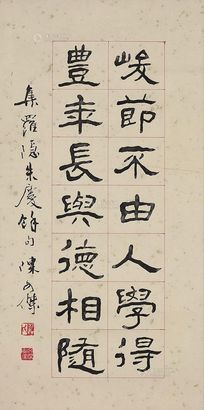 峻節不由人學得
豐年長與德相隨
集羅隱朱慶餘句 陳乃傑